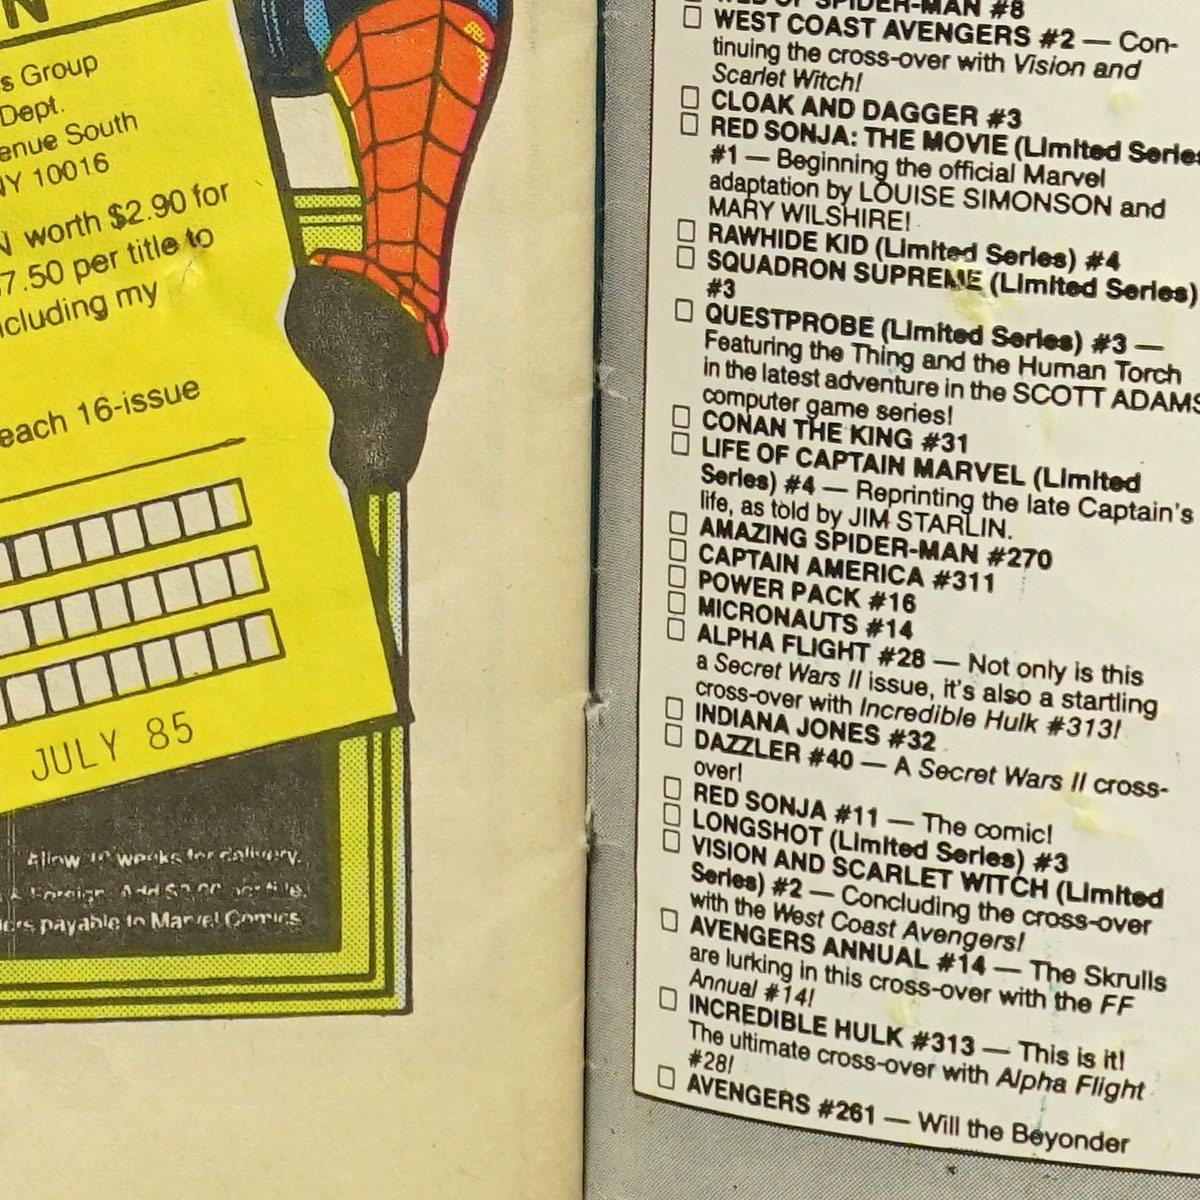 N
s Group
Dept.
enue South
NY 10016
N worth $2.90 for
$7.50 per title to
cluding my
each 16-issue
JULY 85
Allow 10 weeks for delivery.
& Foreign. Add
ders payable to Marvel Comics
WEB OF SPIDER-MAN #8
WEST COAST AVENGERS #2 — Con-
tinuing the cross-over with Vision and
Scarlet Witch!
CLOAK AND DAGGER #3
RED SONJA: THE MOVIE (Limited Series
#1 — Beginning the official Marvel
adaptation by LOUISE SIMONSON and
MARY WILSHIRE!
RAWHIDE KID (Limited Series) #4
SQUADRON SUPREME (Limited Series)
#3
QUESTPROBE (Limited Series) #3 —
Featuring the Thing and the Human Torch
in the latest adventure in the SCOTT ADAMS
computer game series!
CONAN THE KING #31
LIFE OF CAPTAIN MARVEL (Limited
Series) #4 — Reprinting the late Captain's
life, as told by JIM STARLIN.
AMAZING SPIDER-MAN #270
CAPTAIN AMERICA #311
POWER PACK #16
MICRONAUTS #14
ALPHA FLIGHT #28 — Not only is this
a Secret Wars II issue, it's also a startling
cross-over with Incredible Hulk #313!
INDIANA JONES #32
DAZZLER #40 — A Secret Wars II cross-
over!
RED SONJA #11 — The comic!
LONGSHOT (Limited Series) #3
VISION AND SCARLET WITCH (Limited
Series) #2 — Concluding the cross-over
with the West Coast Avengers!
AVENGERS ANNUAL #14 — The Skrulls
are lurking in this cross-over with the FF
Annual #14!
INCREDIBLE HULK #313 — This is it!
The ultimate cross-over with Alpha Flight
#28!
AVENGERS #261 — Will the Beyonder